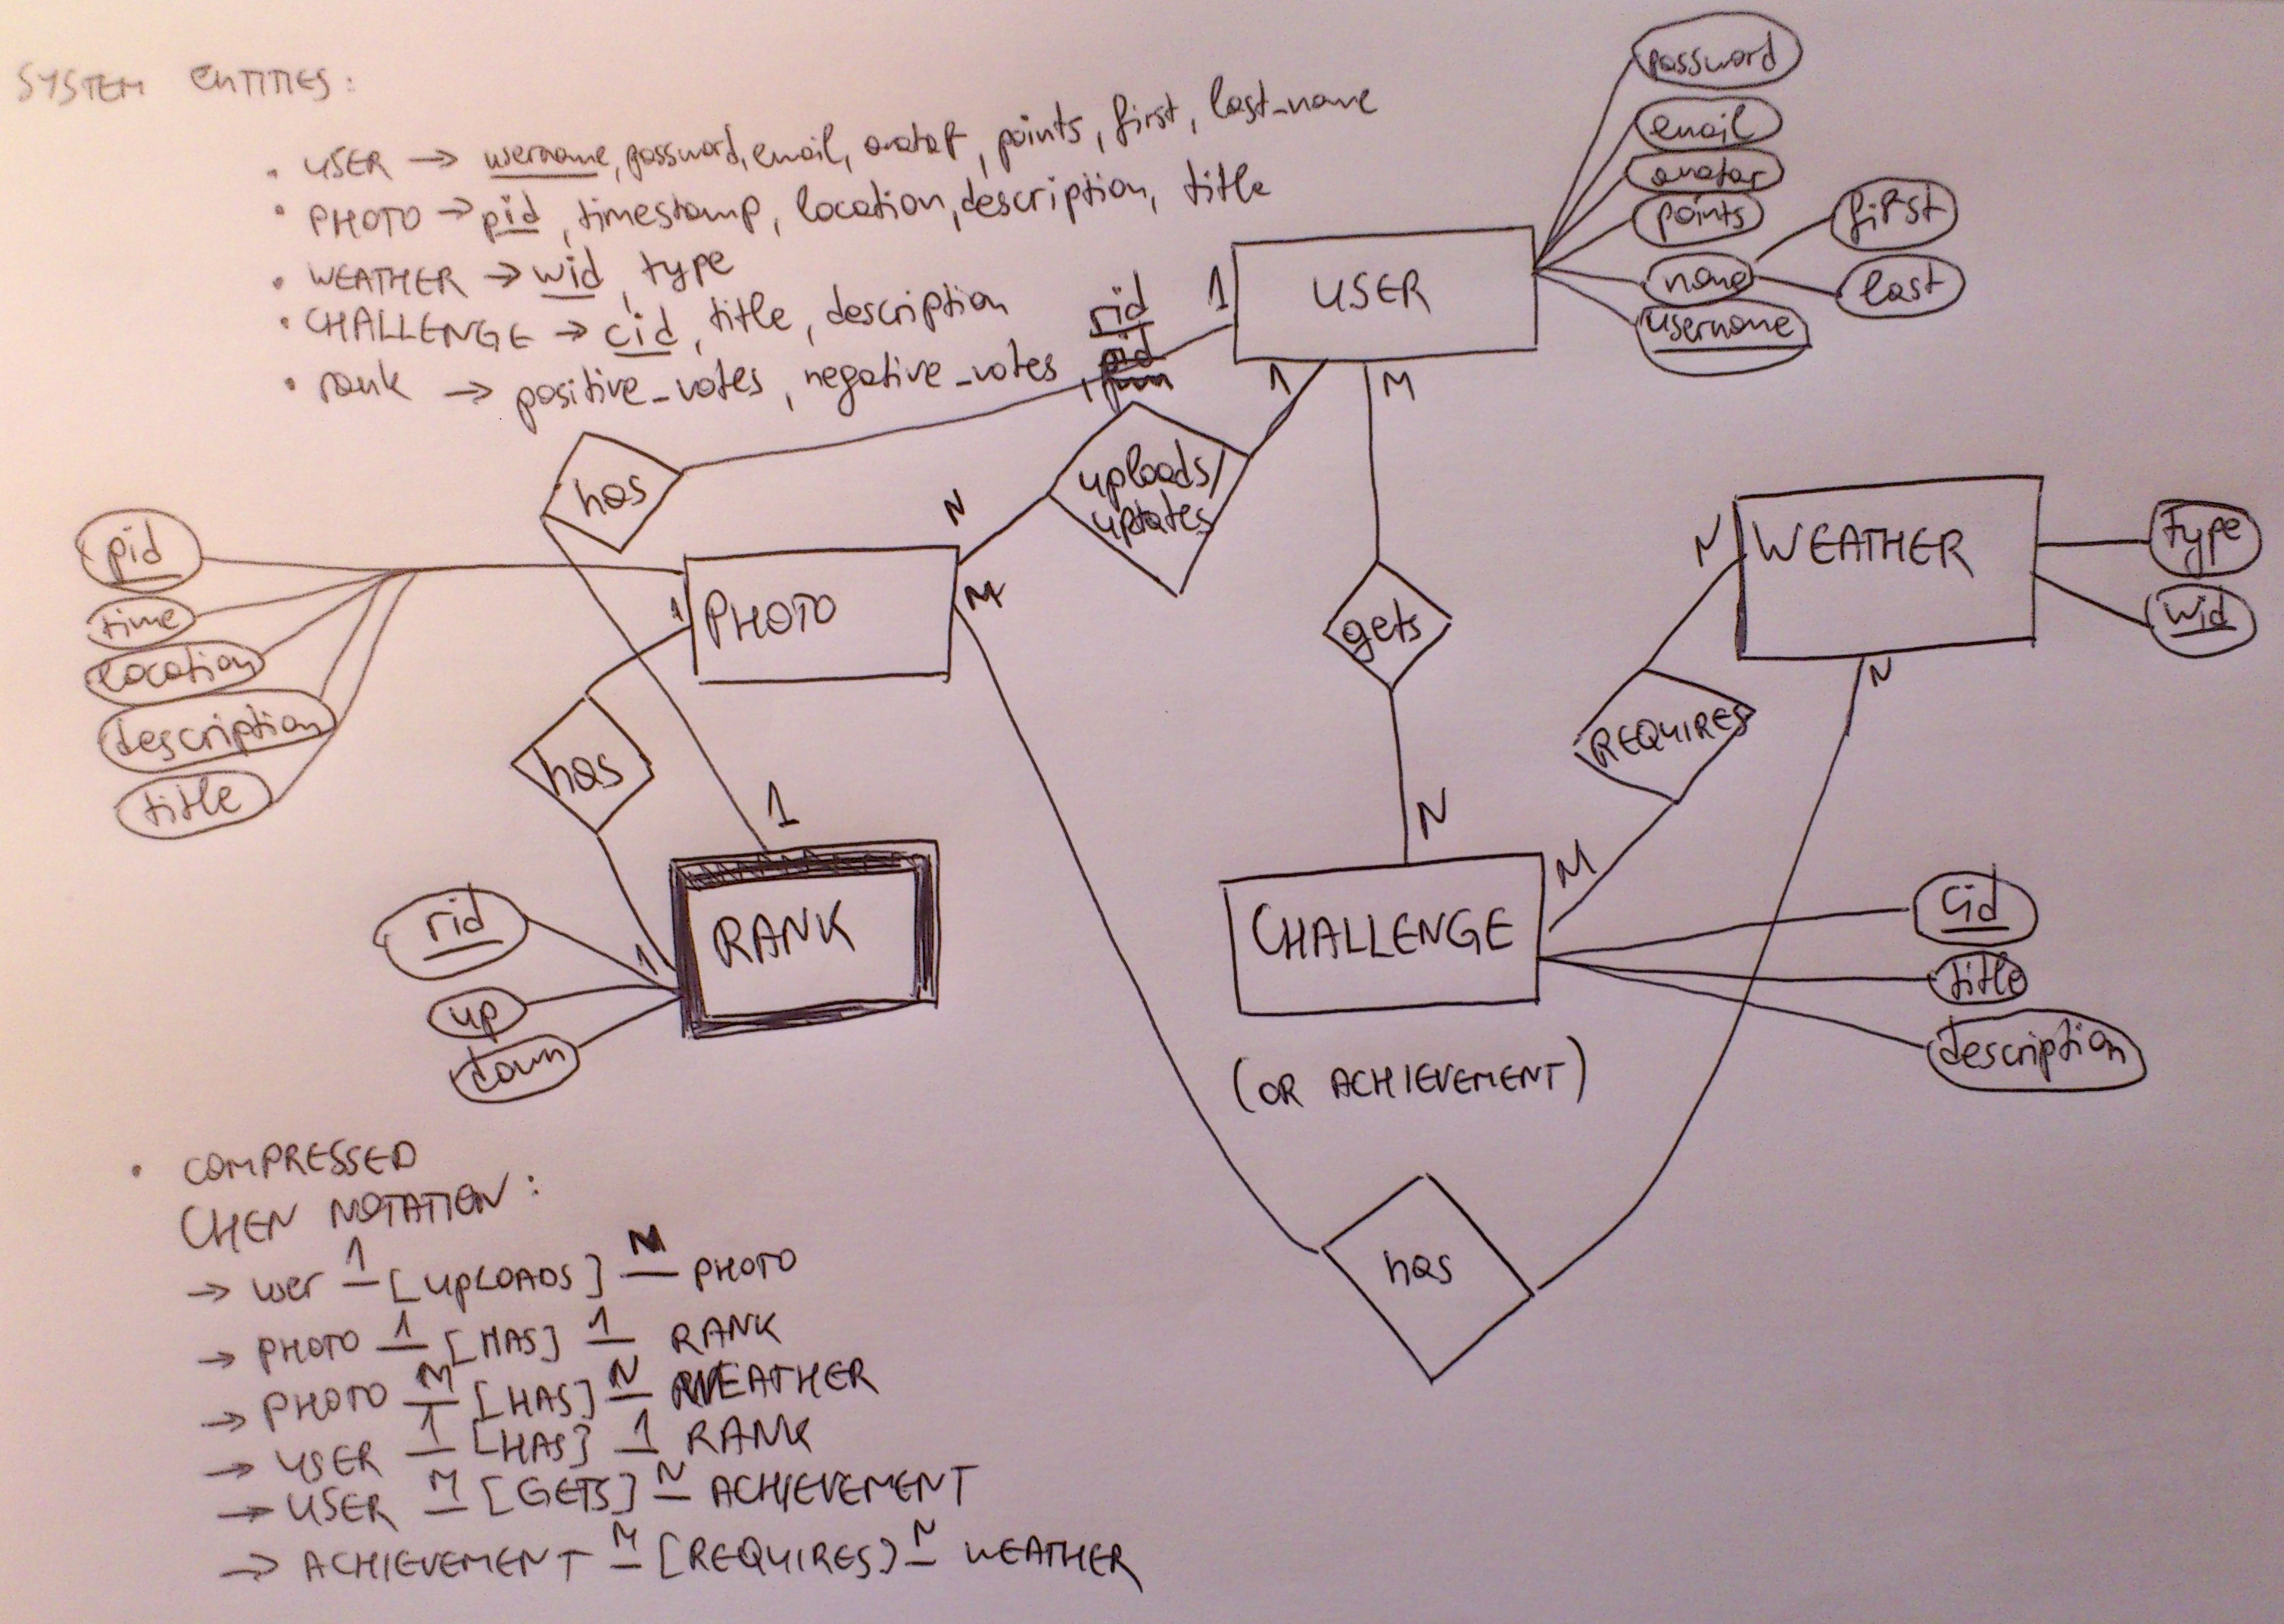 SYSTEM ENTITIES:
• USER → username, password, email, avatar, points, first, last_name
• PHOTO → pid, timestamp, location, description, title
• WEATHER → wid, type
• CHALLENGE → cid, title, description
rid
• rank → positive_votes, negative_votes,
password
email
avatar
points
name
first
last
username
USER
1
1
M
has
uploads/
uptates
N
pid
time
location
description
title
PHOTO
1
M
gets
N
WEATHER
N
type
wid
REQUIRES
M
N
has
1
1
rid
up
down
RANK
CHALLENGE
(OR ACHIEVEMENT)
cid
title
description
has
• COMPRESSED
CHEN NOTATION:
→ user 1 [UPLOADS] N PHOTO
→ PHOTO 1 [HAS] 1 RANK
→ PHOTO M [HAS] N WEATHER
→ USER 1 [HAS] 1 RANK
→ USER M [GETS] N ACHIEVEMENT
→ ACHIEVEMENT M [REQUIRES) N WEATHER